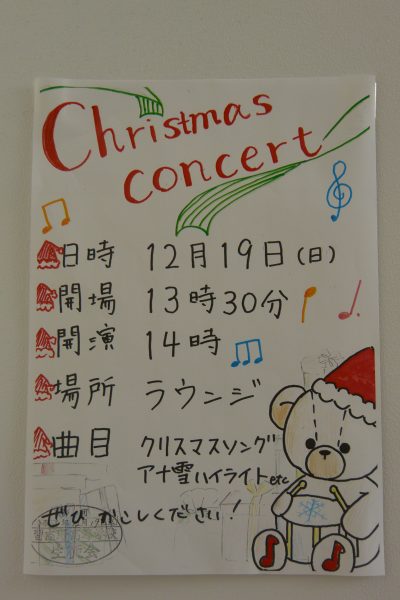 Christmas
concert
日時 12月19日(日)
開場 13時30分
開演 14時
場所 ラウンジ
曲目 クリスマスソング
アナ雪ハイライトetc
ぜひ おこしください!